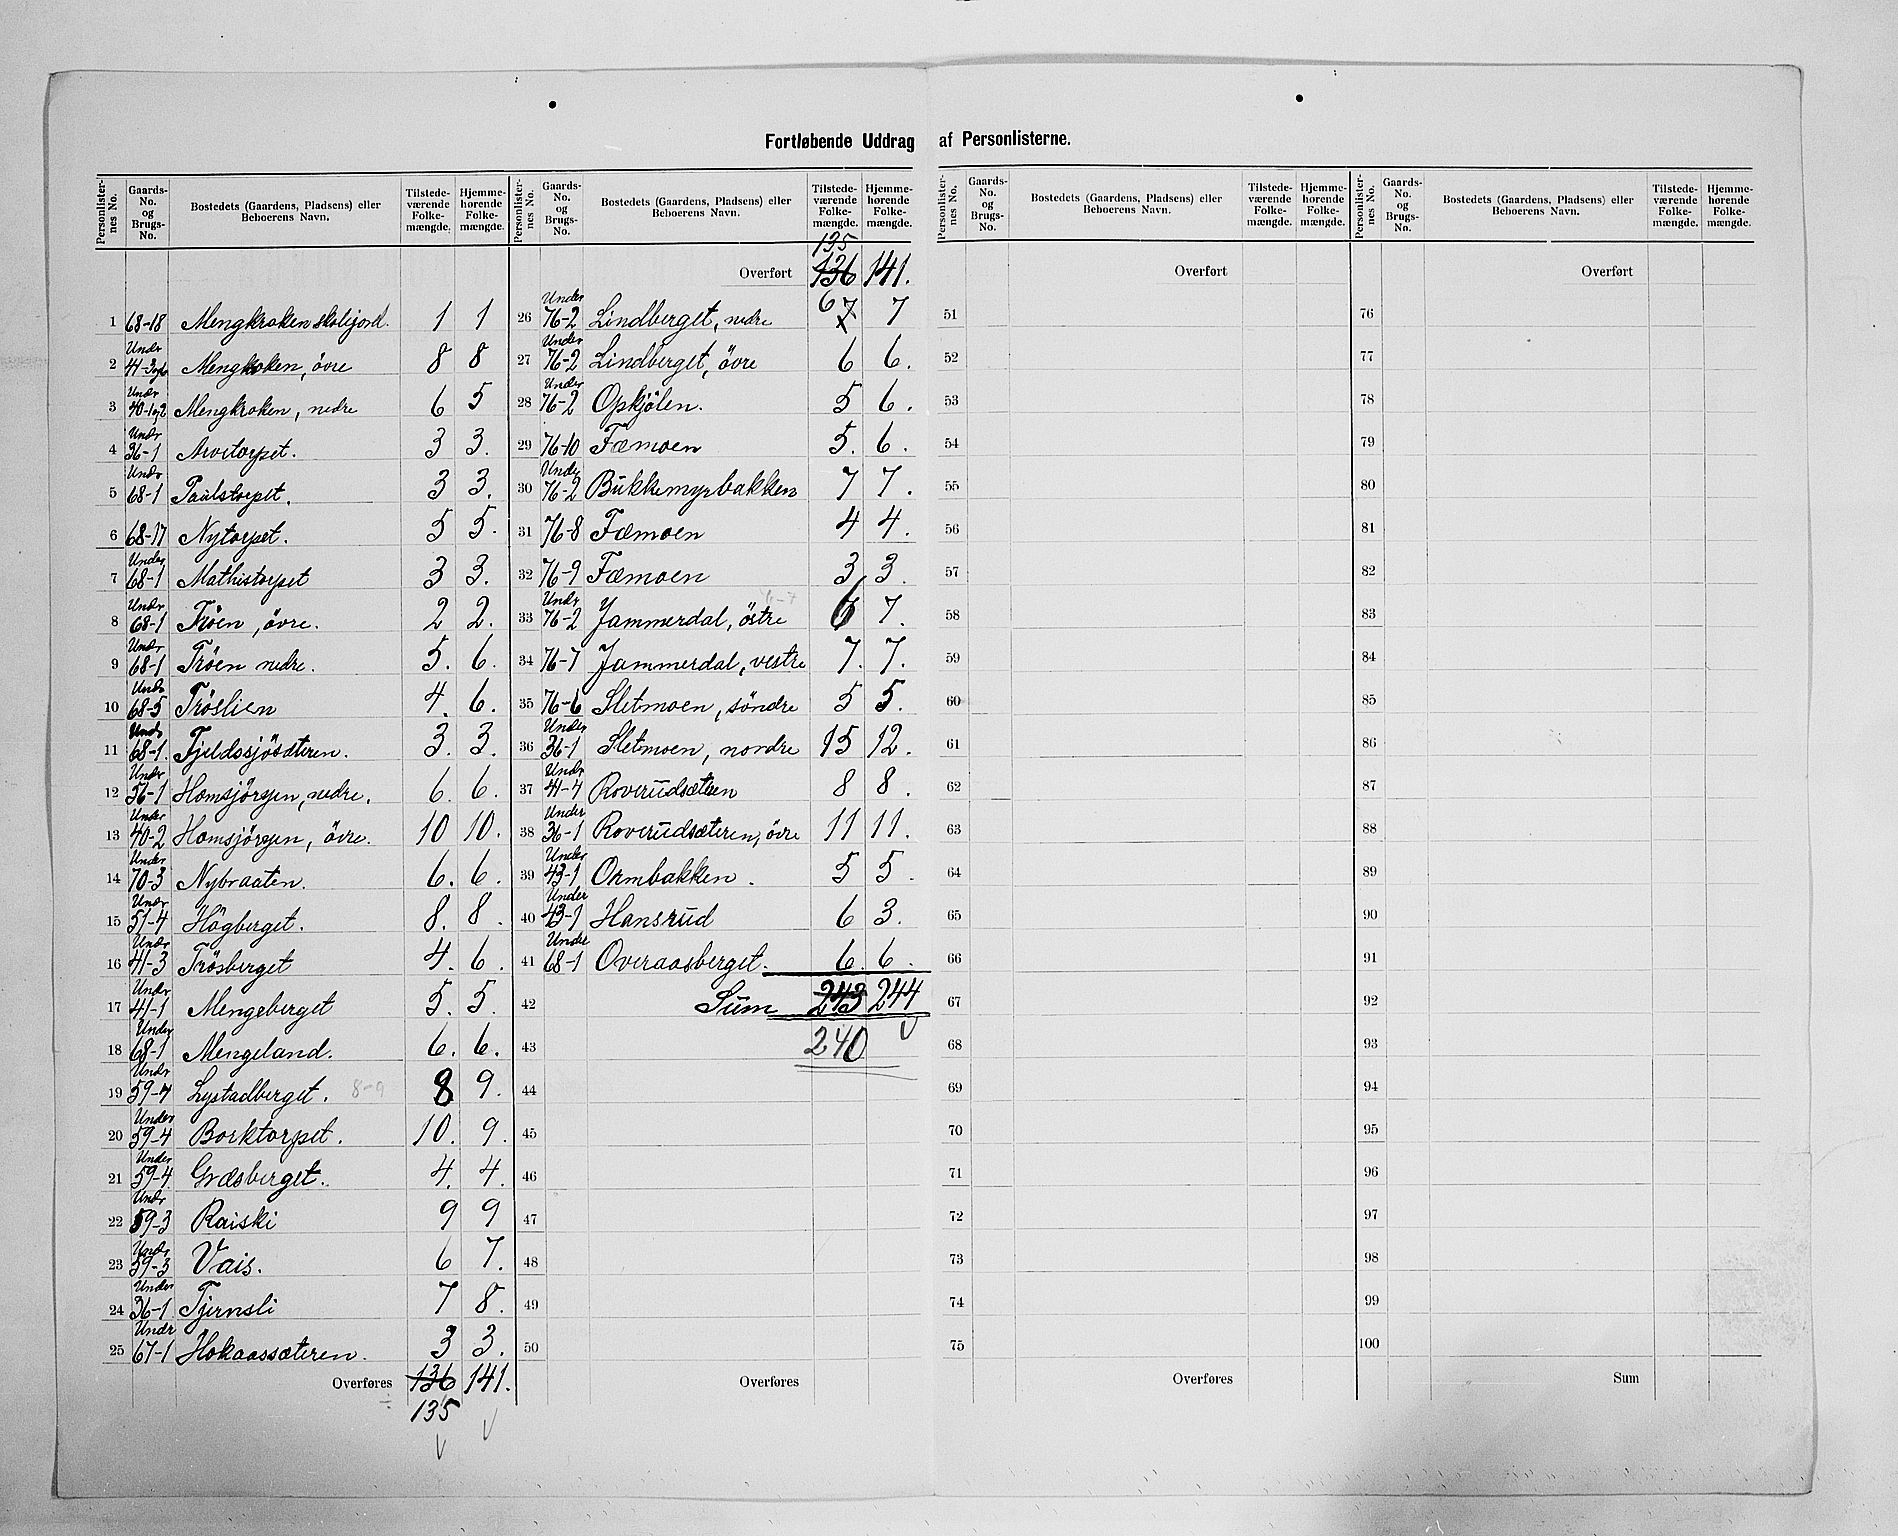 Fortløbende Uddrag af Personlisterne.
Personlister-nes No. | Gaards-No. og Brugs-No. | Bostedets (Gaardens, Pladsens) eller Beboerens Navn. | Tilstede-værende Folke-mængde. | Hjemme-hørende Folke-mængde.
1 68-18 Mengkroken skolejord. 1 1
2 Undr 41-3 Mengkroken, övre 8 8
3 Undr 40-1og2 Mengkroken, nedre 6 5
4 Undr 36-1 Arvetorpet. 3 3.
5 Undr 68-1 Paulstorpet. 3 3.
6 68-17 Nytorpet. 5 5.
7 Under 68-1 Mathistorpet 3 3.
8 Undr 68-1 Tröen, övre. 2 2.
9 Undr 68-1 Tröen nedre. 5. 6.
10 Undr 68-5 Tröslien 4. 6.
11 Undr 68-1. Fjeldssjösæteren. 3. 3.
12 Undr 36-1 Homsjörgen, nedre. 6. 6.
13 Under 40-2 Homsjörgen, övre. 10 10.
14 Under 70-3 Nybraaten. 6. 6.
15 Undr 51-4 Högberget. 8. 8.
16 Undr 41-3 Trösberget 4. 6.
17 Undr 41-1 Mengeberget 5. 5.
18 Under 68-1 Mengeland. 6. 6.
19 Undr 59-4 Lystadberget. 8-9 8 9.
20 Under 59-4 Borktorpet. 10. 9.
21 Under 59-4 Græsberget. 4. 4.
22 Undr 59-3 Raiski 9 9
23 Undr 59-3 Vais. 6 7.
24 Under 36-1 Tjernsli 7 8.
25 Undr 67-1 Hokaassæteren. 3 3.
Overføres 136 141.
135
Personlister-nes No. | Gaards-No. og Brugs-No. | Bostedets (Gaardens, Pladsens) eller Beboerens Navn. | Tilstede-værende Folke-mængde. | Hjemme-hørende Folke-mængde.
135
Overført 136 141.
26 Under 76-2 Lindberget, nedre 6 7 7
27 Under 76-2 Lindberget, övre 6 6.
28 Under 76-2 Opkjölen. 5 6.
29 76-10 Fæmoen 5. 6.
30 Under 76-2 Bukkemyrbakken 7 7.
31 76-8 Fæmoen 4 4.
32 76-9 Fæmoen 3 3.
33 Undr 76-2 Jammerdal, östre 6-7 6 7.
34 76-7 Jammerdal, vestre 7. 7.
35 76-6 Sletmoen, söndre 5 5.
36 Under 36-1 Sletmoen, nordre 15 12.
37 Undr 41-4 Roverudsæteren 8 8.
38 Under 36-1 Roverudsæteren, övre 11 11.
39 Under 43-1 Ormbakken. 5 5.
40 Under 43-1 Hansrud 6 3.
41 Under 68-1 Overaasberget. 6. 6.
42 Sum 243 244
43 240
44
45
46
47
48
49
50
Overføres
Personlister-nes No. | Gaards-No. og Brugs-No. | Bostedets (Gaardens, Pladsens) eller Beboerens Navn. | Tilstede-værende Folke-mængde. | Hjemme-hørende Folke-mængde.
Overført
51
52
53
54
55
56
57
58
59
60
61
62
63
64
65
66
67
68
69
70
71
72
73
74
75
Overføres
Personlister-nes No. | Gaards-No. og Brugs-No. | Bostedets (Gaardens, Pladsens) eller Beboerens Navn. | Tilstede-værende Folke-mængde. | Hjemme-hørende Folke-mængde.
Overført
76
77
78
79
80
81
82
83
84
85
86
87
88
89
90
91
92
93
94
95
96
97
98
99
100
Sum